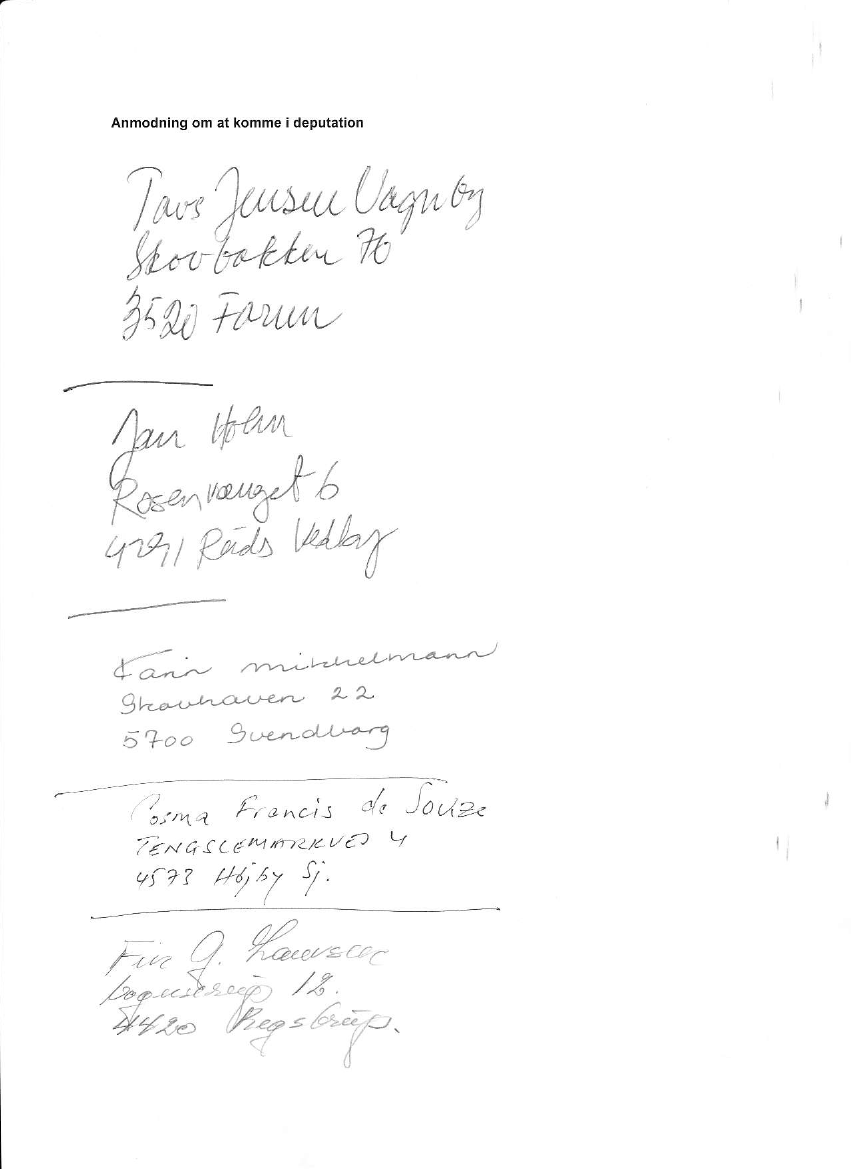 Anmodning om at komme i deputation
Tavs Jensen Vagnby
Skovbakken 76
3520 Farum
Jan Holm
Rosenvænget 6
4291 Ruds Vedby
Karin mikkelmann
Skovhaven 22
5700 Svendborg
Cosma Francis de Souza
TENGSLEMARKVEJ 4
4573 Højby Sj.
Finn G. Lauvsen
12.
4420 Regstrup.